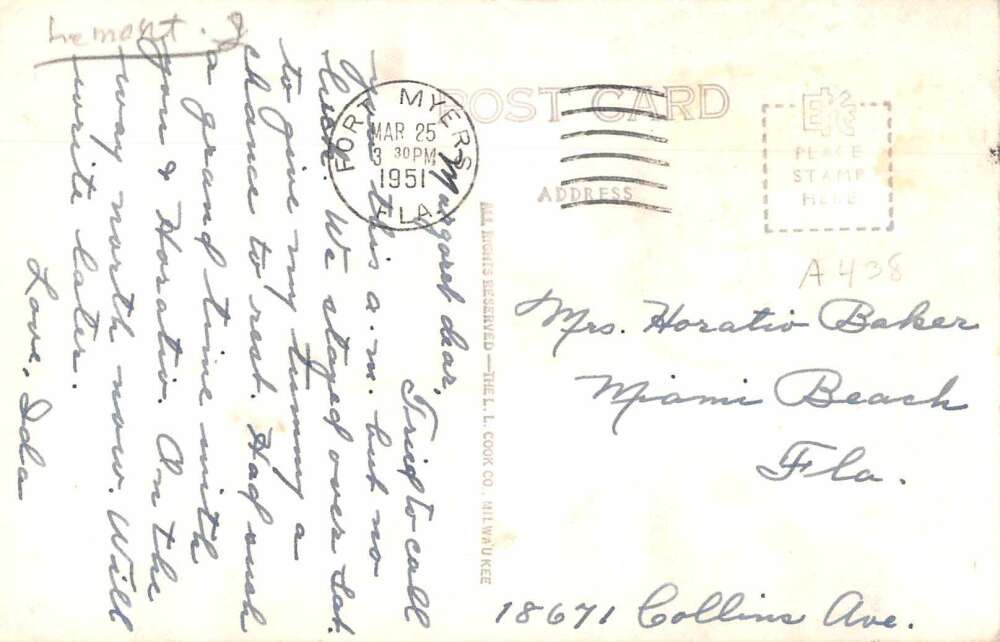 Lemont.
Margaret dear,
Tried to call
you this a.m. but no
luck. We stayed over Sat.
to give my tummy a
chance to rest. Had such
a grand time with
you & Horatio. On the
way north now. Will
write later.
Love, Ida
FORT MYERS
MAR 25
3 30 PM
1951
FLA
POST CARD
ADDRESS
EKC
PLACE
STAMP
HERE
A438
ALL RIGHTS RESERVED—THE L. L. COOK CO., MILWAUKEE
Mrs. Horatio Baker
Miami Beach
Fla.
18671 Collins Ave.